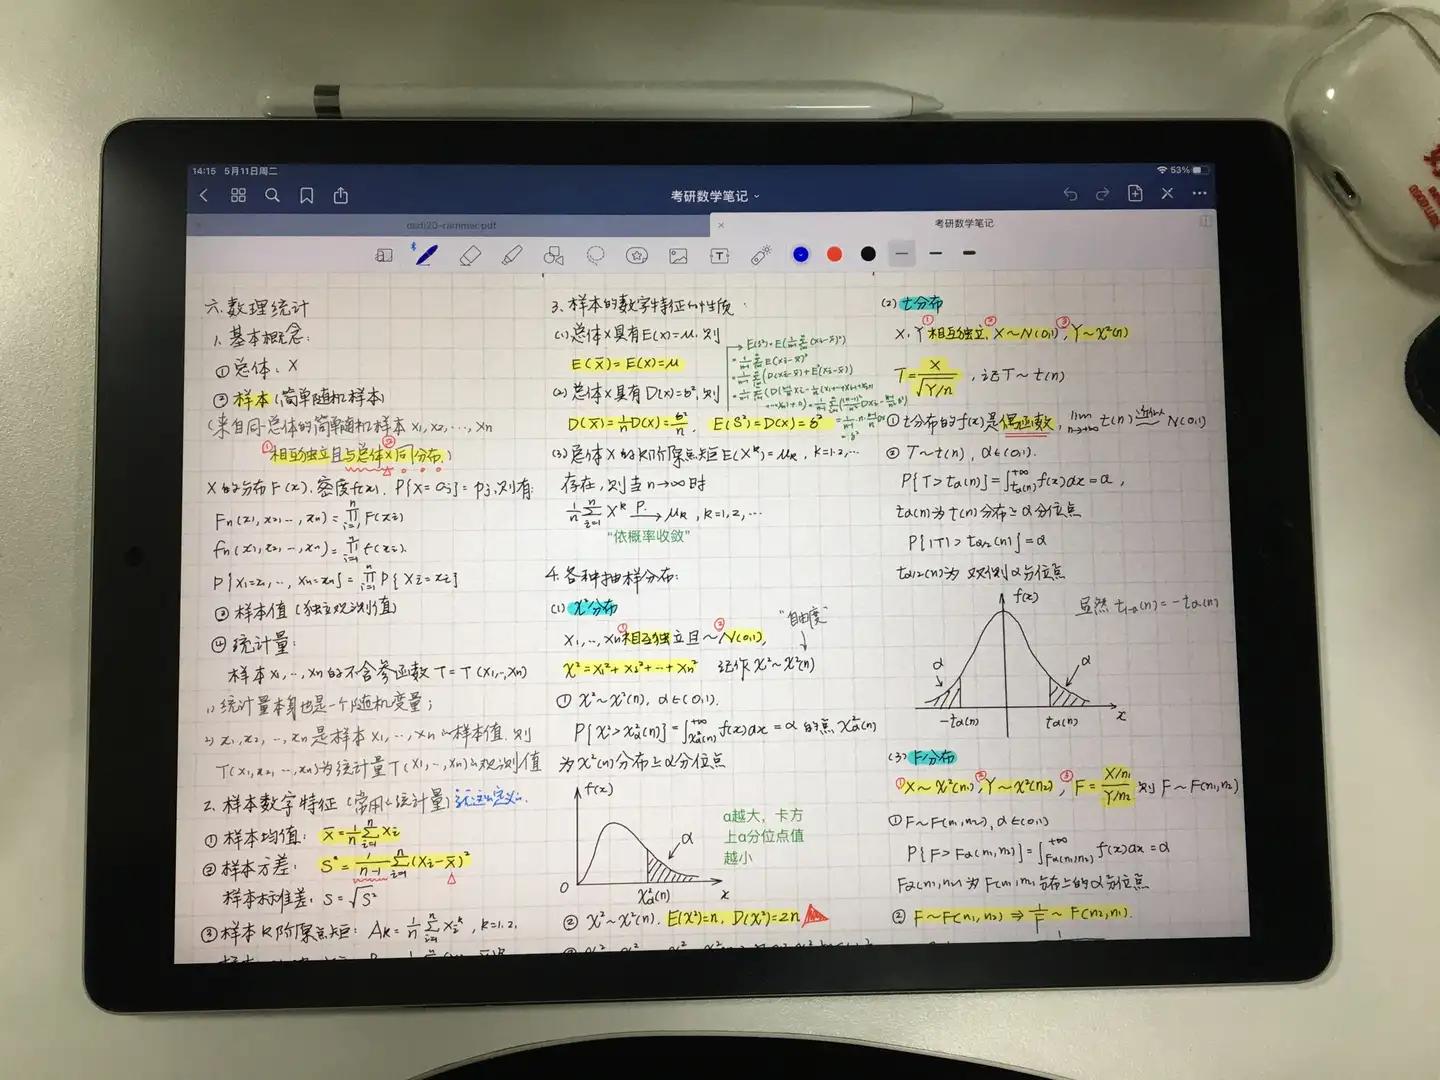 14:15 5月11日周二
53%
考研数学笔记
osdi20-rammer.pdf
考研数学笔记
六.数理统计
1. 基本概念:
① 总体. X
② 样本(简单随机样本)
(来自同一总体的简单随机样本 X1, X2, …, Xn
①相互独立且与总体X②同分布.)
X的分布F(x), 密度f(x), P{X=aj}=pj, 则有:
Fn(x1,x2,…,xn)=∏_{i=1}^{n} F(xi)
fn(x1,x2,…,xn)=∏_{i=1}^{n} f(xi).
P{X1=x1,…,Xn=xn}=∏_{i=1}^{n} P{Xi=xi}
③ 样本值(独立观测值)
④ 统计量:
样本X1,…,Xn的不含参函数T=T(X1,…,Xn)
1) 统计量本身也是一个随机变量;
2) x1,x2,…,xn是样本X1,…,Xn的样本值,则
T(x1,x2,…,xn)为统计量T(X1,…,Xn)的观测值
2. 样本数字特征(常用的统计量)
① 样本均值: X̄=1/n ∑_{i=1}^{n} Xi
② 样本方差: S²=1/(n-1) ∑_{i=1}^{n} (Xi-X̄)²
样本标准差: S=√S²
③ 样本k阶原点矩: Ak=1/n ∑_{i=1}^{n} Xi^k, k=1,2,
3. 样本的数字特征的性质:
(1) 总体X具有E(X)=μ, 则
E(X̄)=E(X)=μ
(2) 总体X具有D(X)=σ², 则
D(X̄)=1/n D(X)=σ²/n, E(S²)=D(X)=σ²
(3) 总体X的k阶原点矩E(X^k)=μk, k=1,2,…
存在, 则当n→∞时
1/n ∑_{i=1}^{n} X^k P→ μk, k=1,2,…
"依概率收敛"
4. 各种抽样分布:
(1) χ²分布
X1,…,Xn①相互独立且~②N(0,1),
"自由度"
χ²=X1²+X2²+…+Xn² 记作χ²~χ²(n)
① χ²~χ²(n), α∈(0,1).
P{χ²>χ²α(n)}=∫_{χ²α(n)}^{+∞} f(x)dx=α的点χ²α(n)
为χ²(n)分布上α分位点
f(x)
α
0
χ²α(n)
x
α越大，卡方
上α分位点值
越小
② χ²~χ²(n), E(χ²)=n, D(χ²)=2n
(2) t分布
X, Y①相互独立, ②X~N(0,1), ③Y~χ²(n)
T=X/√(Y/n), 记T~t(n)
① t分布的f(x)是偶函数, lim_{n→+∞} t(n) 近似 N(0,1)
② T~t(n), α∈(0,1).
P{T>tα(n)}=∫_{tα(n)}^{+∞} f(x)dx=α,
tα(n)为t(n)分布上α分位点
P{|T|>tα/2(n)}=α
tα/2(n)为 双侧α分位点
f(x)
显然 t1-α(n)=-tα(n)
α
α
-tα(n)
tα(n)
x
(3) F分布
①X~χ²(n1), ②Y~χ²(n2), ③F=(X/n1)/(Y/n2) 则F~F(n1,n2)
① F~F(n1,n2), α∈(0,1)
P{F>Fα(n1,n2)}=∫_{Fα(n1,n2)}^{+∞} f(x)dx=α
Fα(n1,n2)为F(n1,n2)分布上的α分位点
② F~F(n1,n2)⇒1/F~F(n2,n1).